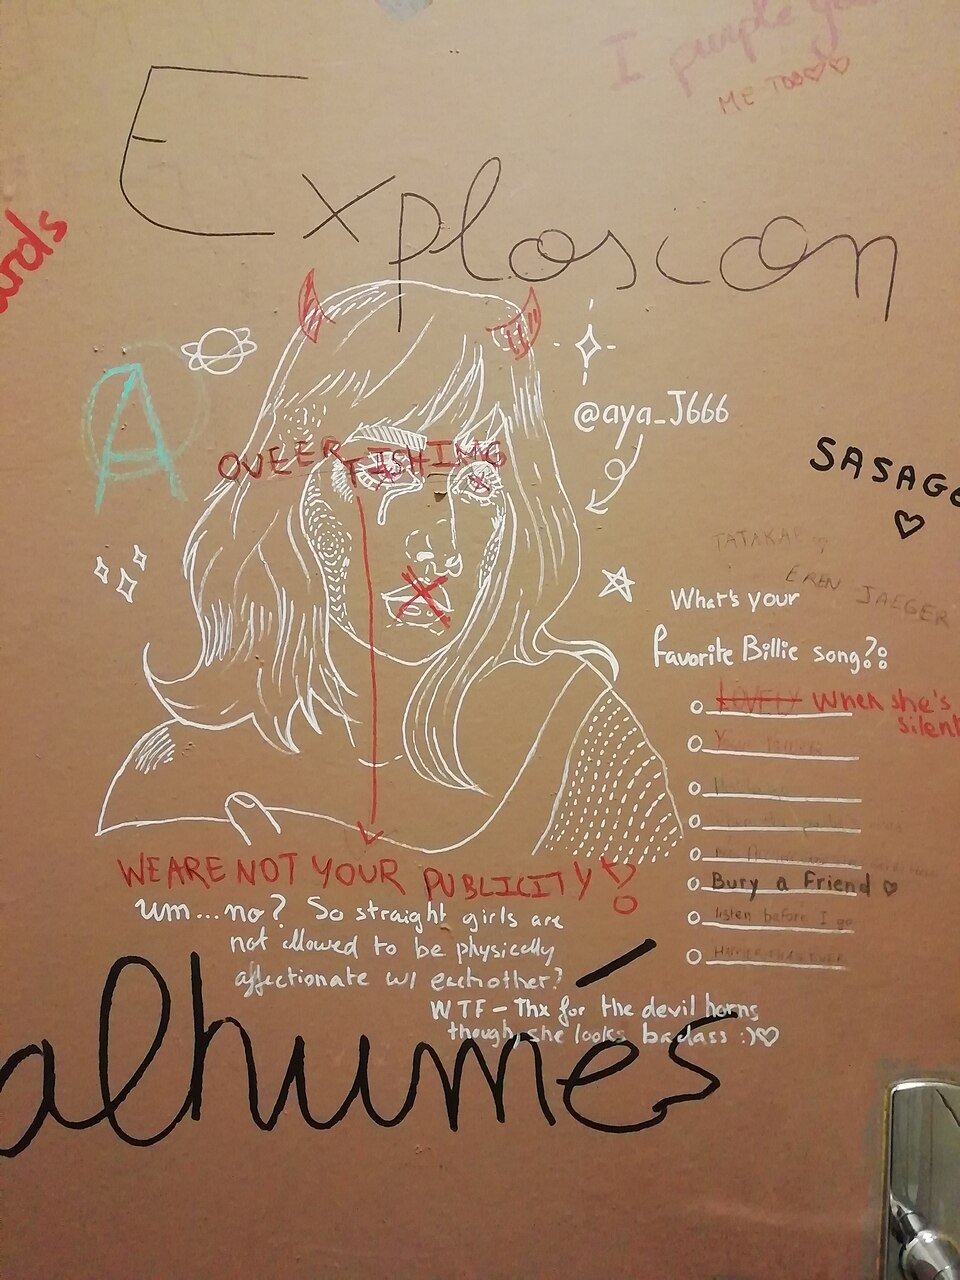 I purple you
ME TOO♡♡
Explosion
A
@aya_J666
QUEER FISHING
SASAGE
♡
TATAKAE
EREN JAEGER
What's your
favorite Billie song?
LOVELY When she's
silent
Bury a Friend ♡
listen before I go
WE ARE NOT YOUR PUBLICITY!
um...no? So straight girls are
not allowed to be physically
affectionate w/ eachother?
WTF - Thx for the devil horns
though, she looks badass :)♡
alhumés